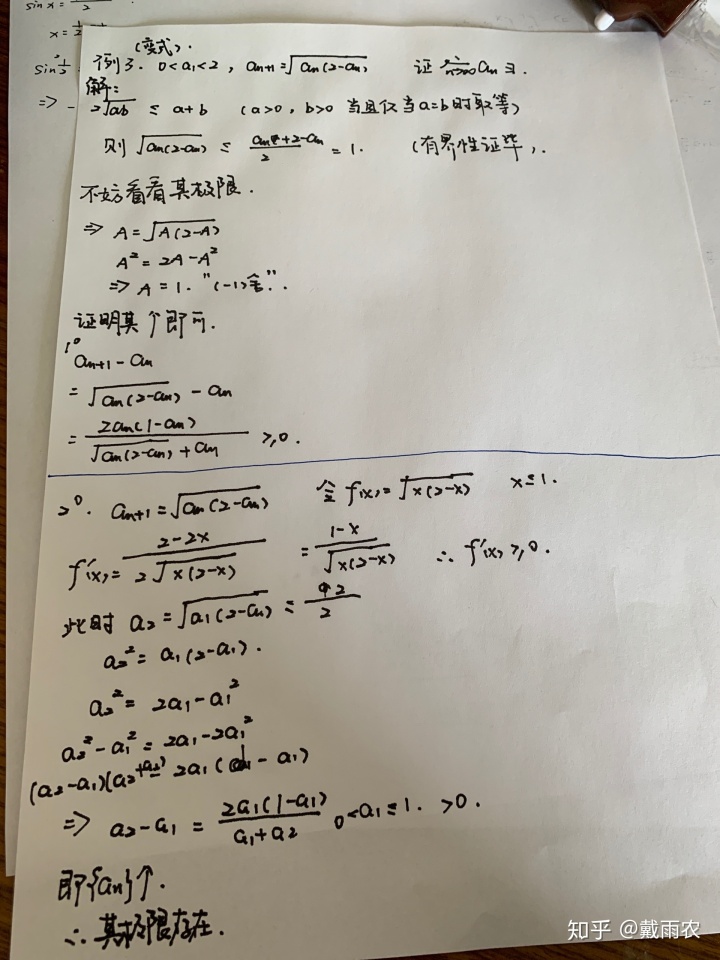 sin x =
x =
sin
⇒
(变式).
例3. 0<a₁<2, aₙ₊₁=√(aₙ(2-aₙ)) 证 lim n→∞ aₙ ∃.
解:
2√(ab) ≤ a+b (a>0, b>0 当且仅当a=b时取等)
则 √(aₙ(2-aₙ)) ≤ (aₙ+2-aₙ)/2 = 1. (有界性证毕).
不妨看看其极限.
⇒ A=√(A(2-A))
A² = 2A-A²
⇒ A = 1. "(-1)舍".
证明其↑即可.
1° aₙ₊₁-aₙ
= √(aₙ(2-aₙ)) - aₙ
= 2aₙ(1-aₙ)/(√(aₙ(2-aₙ))+aₙ) ≥0.
2°. aₙ₊₁=√(aₙ(2-aₙ)) 令f(x)=√(x(2-x)) x≤1.
f'(x)= (2-2x)/(2√(x(2-x))) = (1-x)/√(x(2-x)) ∴ f'(x)≥0.
此时 a₂=√(a₁(2-a₁)) ≤ 2/2
a₂²= a₁(2-a₁).
a₂²= 2a₁-a₁²
a₂²-a₁²=2a₁-2a₁²
(a₂-a₁)(a₂+a₁)= 2a₁(1-a₁)
⇒ a₂-a₁ = 2a₁(1-a₁)/(a₁+a₂) 0<a₁≤1. >0.
即{aₙ}↑.
∴ 其极限存在.
知乎 @戴雨农